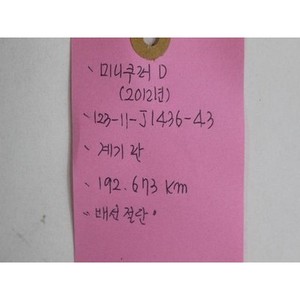 、미니쿠퍼 D
(2012년)
、123-11-J1436-43
、계기판
、192.673 km
、배선절단.